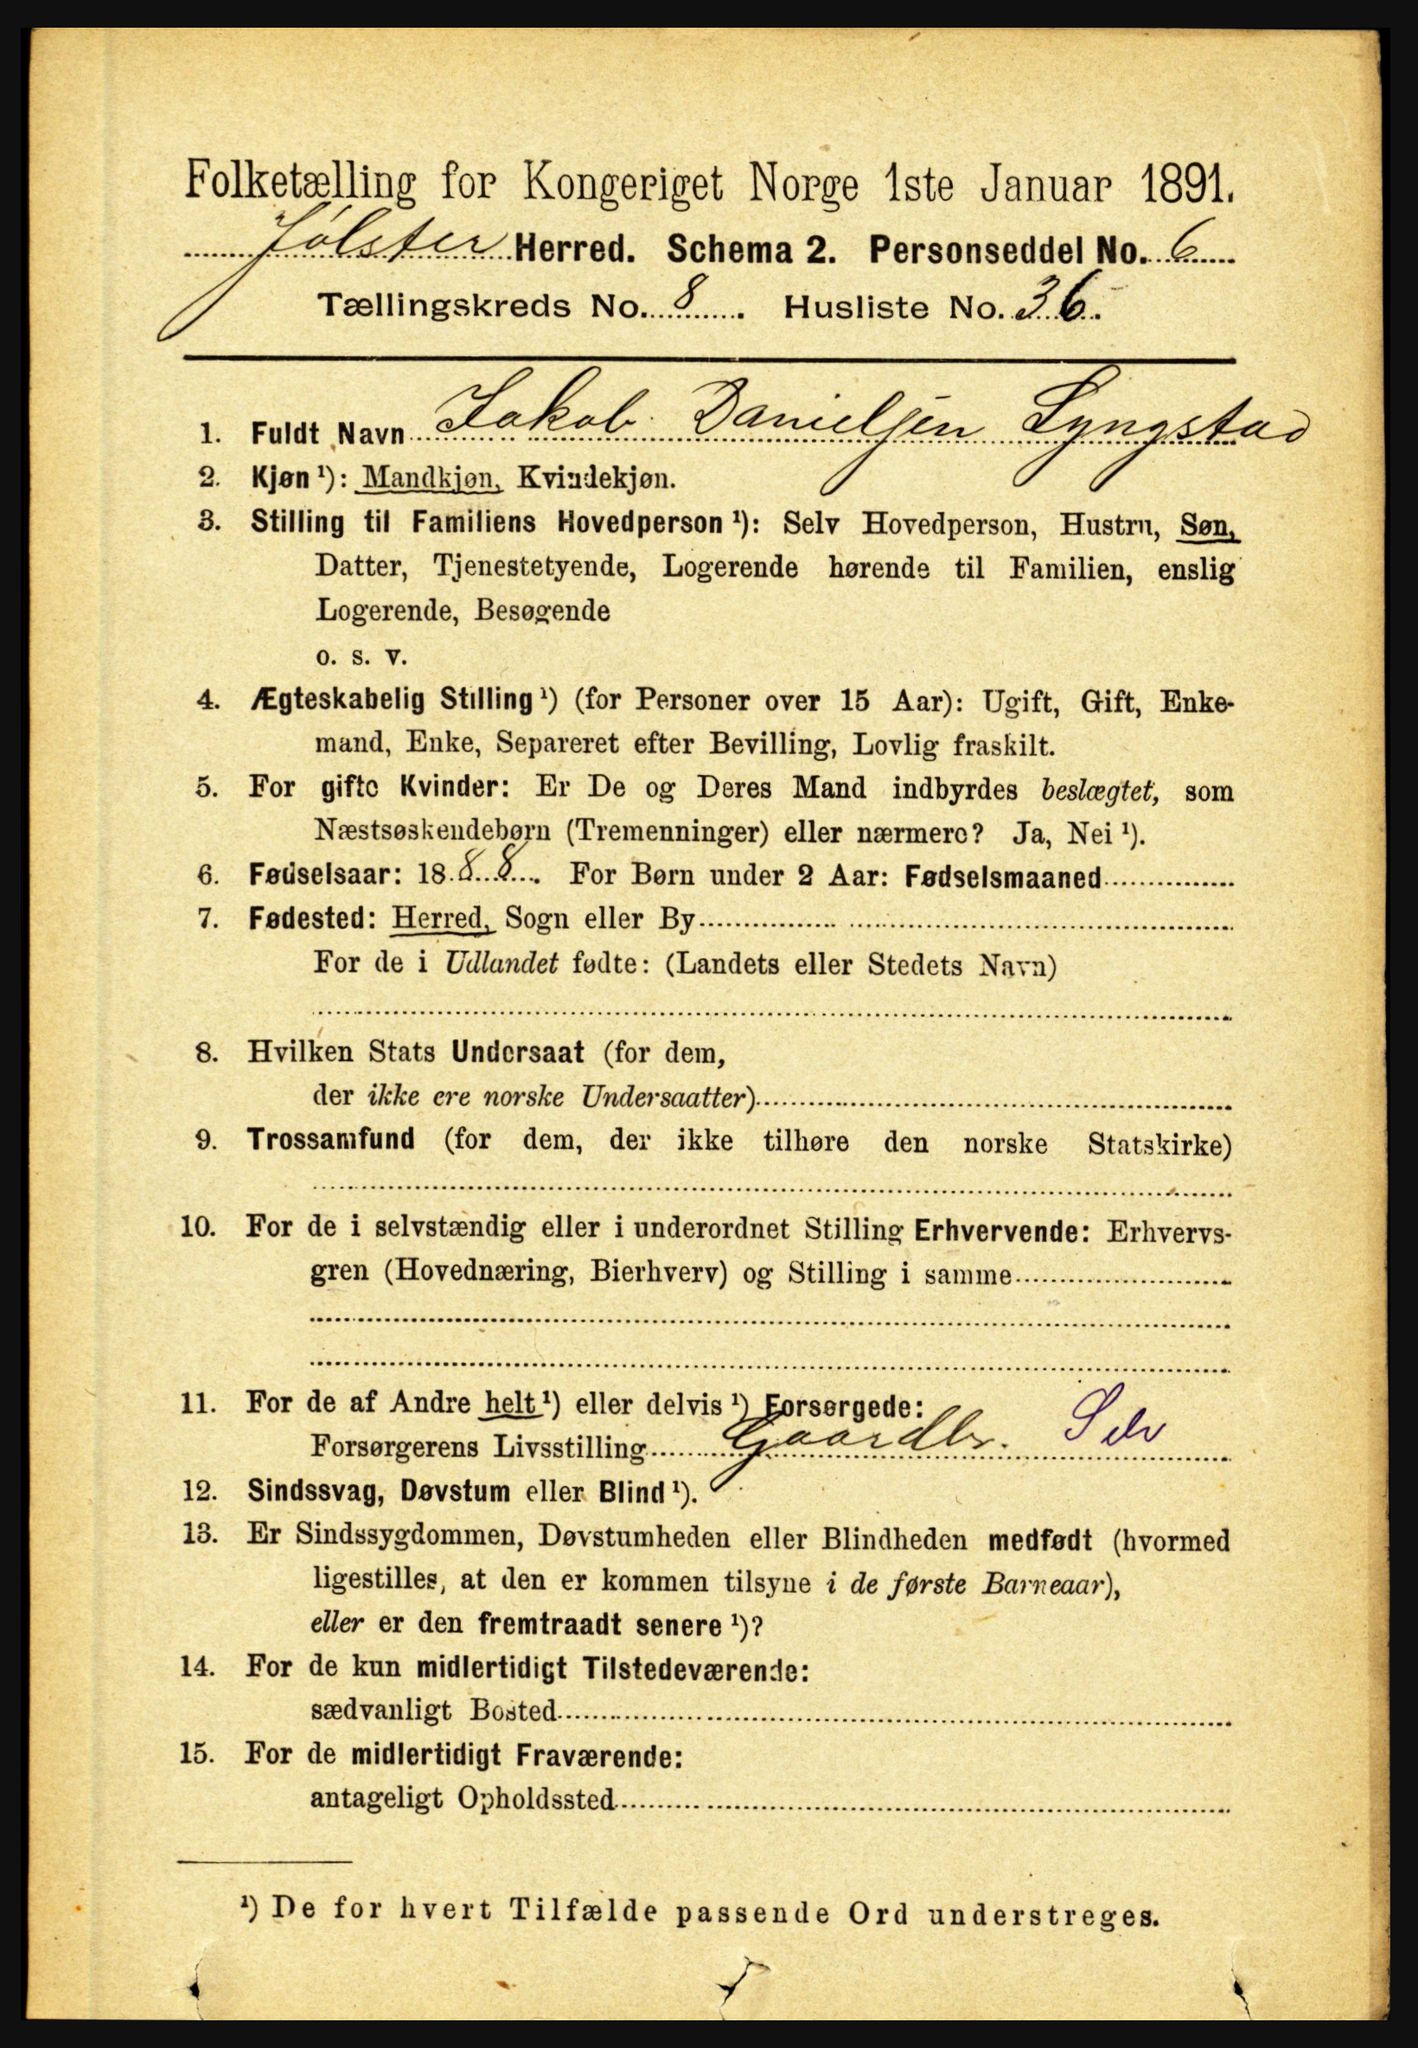 Folketælling for Kongeriget Norge 1ste Januar 1891.
Jølster Herred. Schema 2. Personseddel No. 6
Tællingskreds No. 8. Husliste No. 36.
1. Fuldt Navn Jakob Danielsen Lyngstad
2. Kjøn ¹): Mandkjøn, Kvindekjøn.
3. Stilling til Familiens Hovedperson ¹): Selv Hovedperson, Hustru, Søn,
Datter, Tjenestetyende, Logerende hørende til Familien, enslig
Logerende, Besøgende
o. s. v.
4. Ægteskabelig Stilling ¹) (for Personer over 15 Aar): Ugift, Gift, Enke-
mand, Enke, Separeret efter Bevilling, Lovlig fraskilt.
5. For gifte Kvinder: Er De og Deres Mand indbyrdes beslægtet, som
Næstsøskendebørn (Tremenninger) eller nærmere? Ja, Nei ¹).
6. Fødselsaar: 1888. For Børn under 2 Aar: Fødselsmaaned
7. Fødested: Herred, Sogn eller By
For de i Udlandet fødte: (Landets eller Stedets Navn)
8. Hvilken Stats Undersaat (for dem,
der ikke ere norske Undersaatter)
9. Trossamfund (for dem, der ikke tilhøre den norske Statskirke)
10. For de i selvstændig eller i underordnet Stilling Erhvervende: Erhvervs-
gren (Hovednæring, Bierhverv) og Stilling i samme
11. For de af Andre helt ¹) eller delvis ¹) Forsørgede:
Forsørgerens Livsstilling Gaardbr. Selv
12. Sindssvag, Døvstum eller Blind ¹).
13. Er Sindssygdommen, Døvstumheden eller Blindheden medfødt (hvormed
ligestilles, at den er kommen tilsyne i de første Barneaar),
eller er den fremtraadt senere ¹)?
14. For de kun midlertidigt Tilstedeværende:
sædvanligt Bosted
15. For de midlertidigt Fraværende:
antageligt Opholdssted
¹) De for hvert Tilfælde passende Ord understreges.